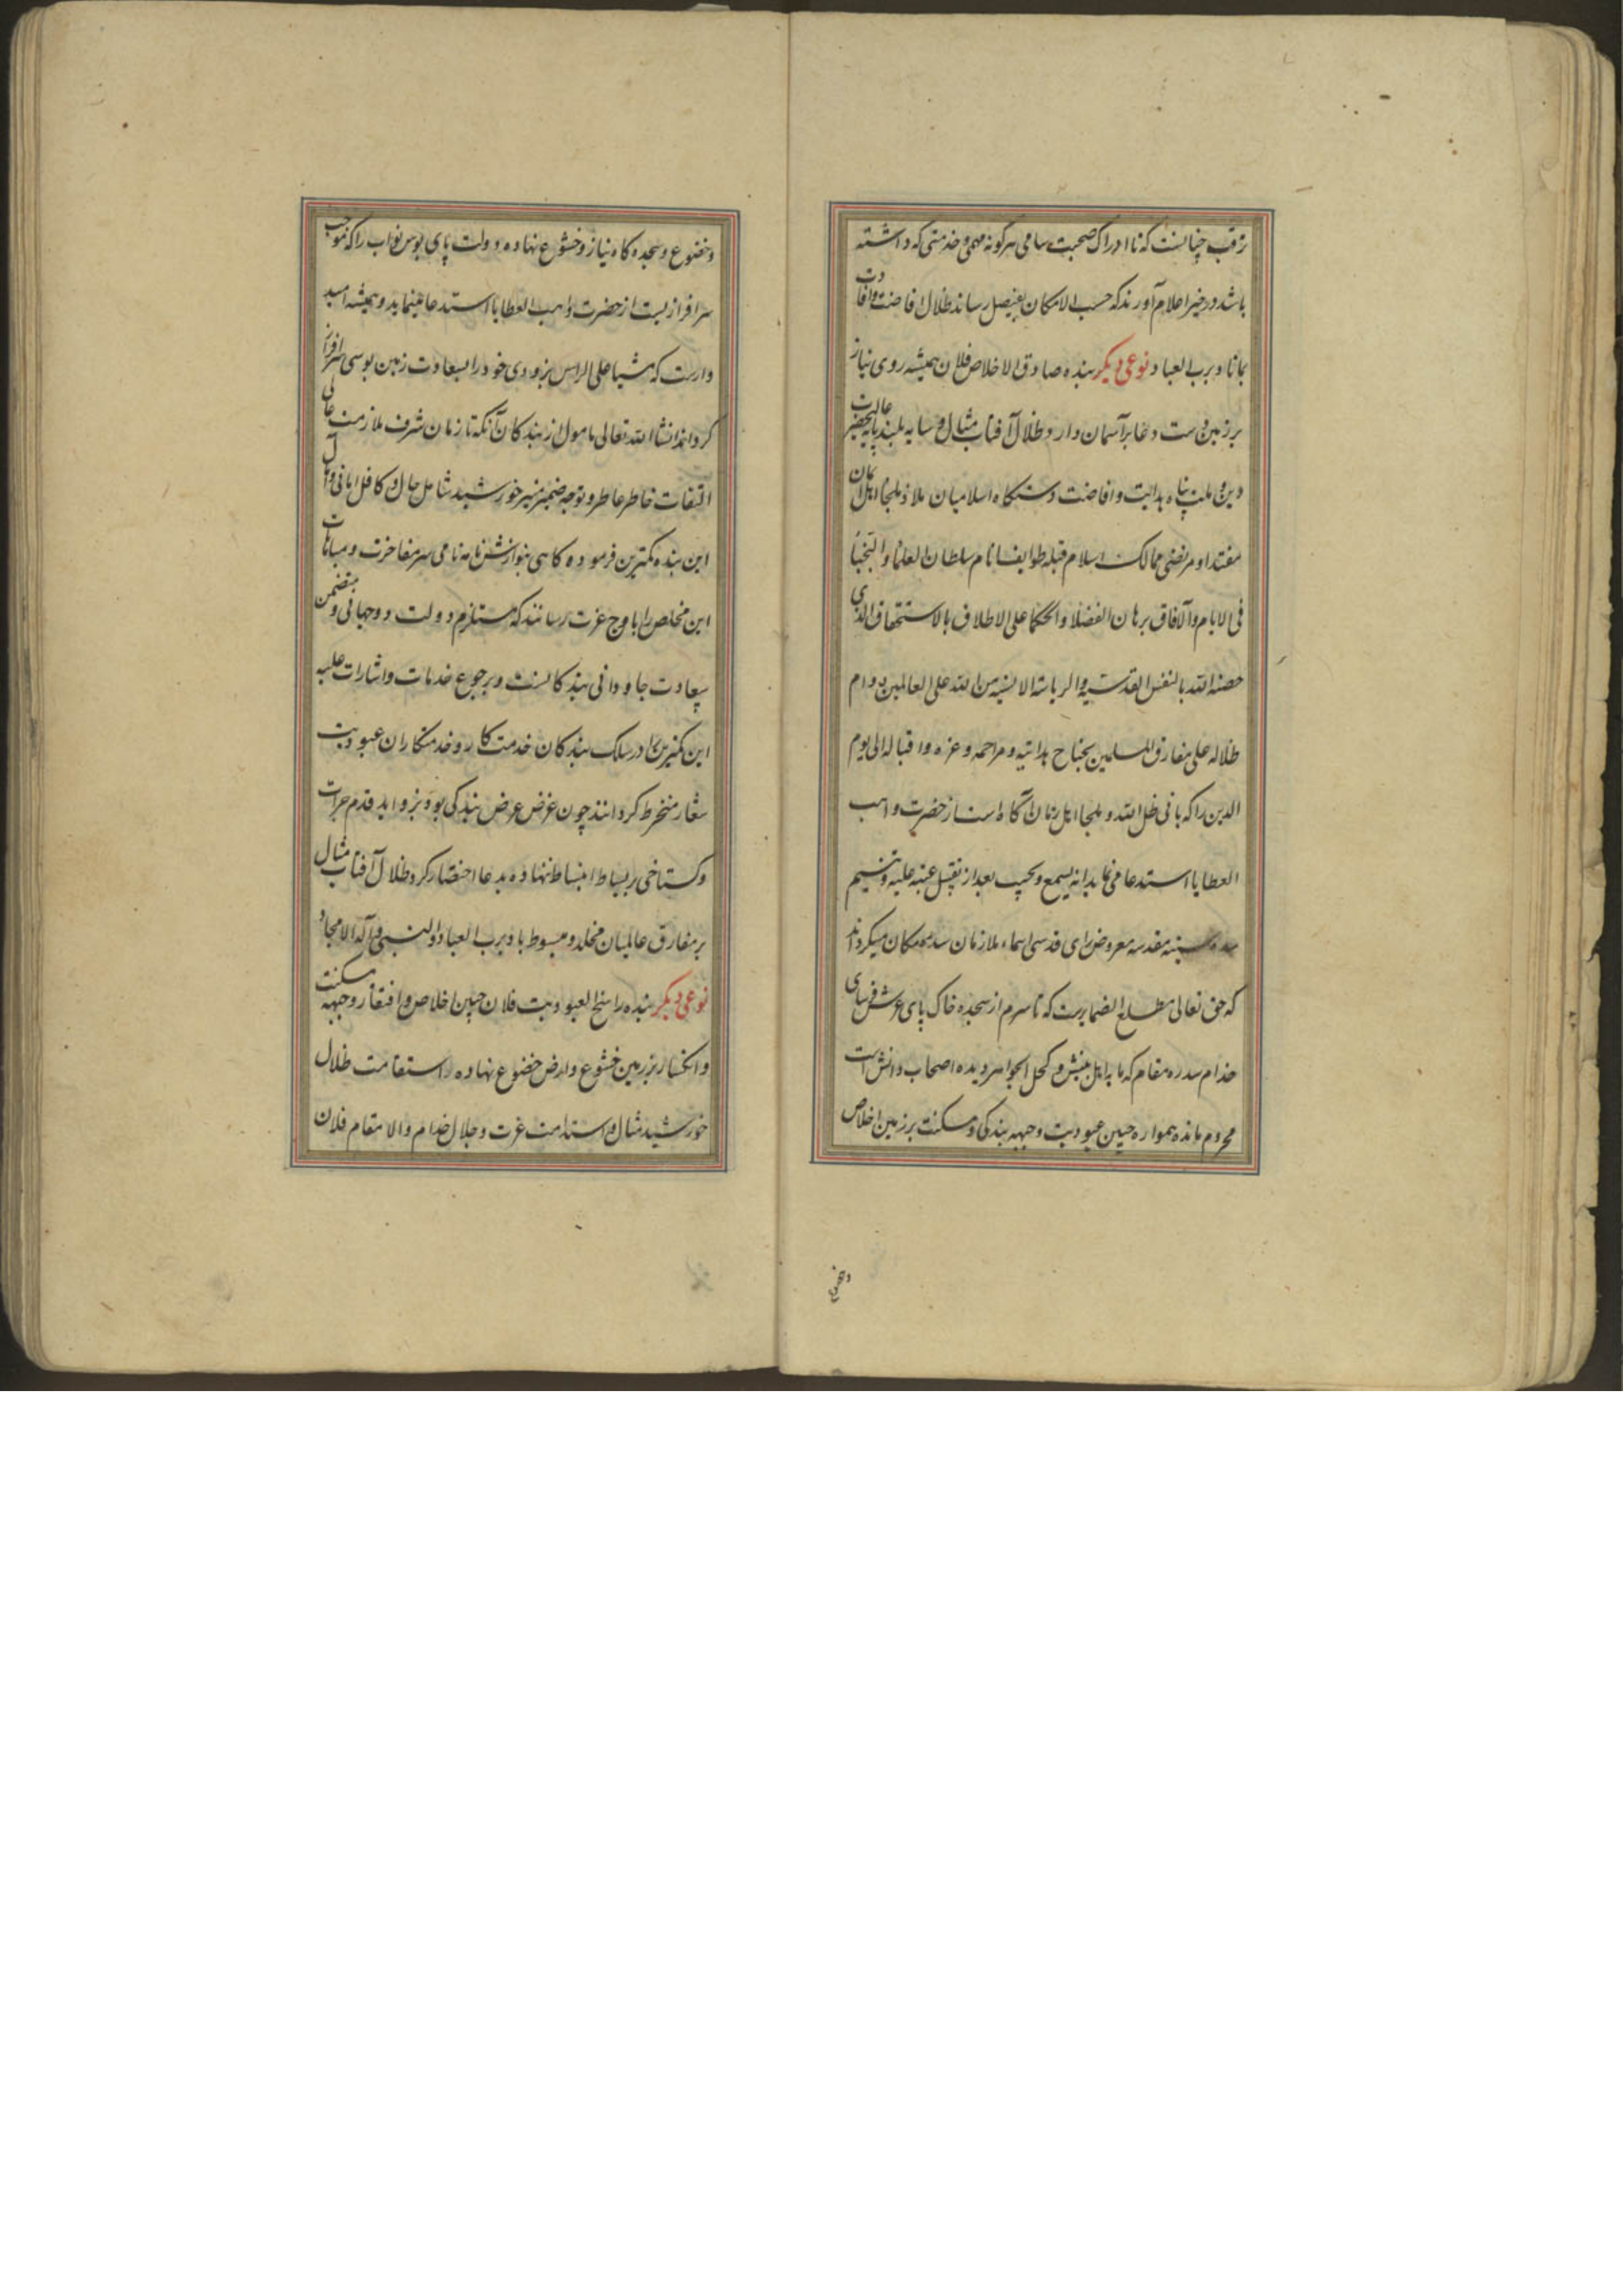 ترقب چنانست که تا ادراک صحبت سامی هرگونه مهمی و خدمتی که داشته
باشد در حیز اعلام آورند که حسب الامکان بفیصل رساند ظلال افاضت وافادت
بماناد برب العباد نوعی دیکر بنده صادق الاخلاص فلان همیشه روی نیاز
بر زمین و دست دعا بر آسمان دارد و ظلال آفتاب مثال و سایه بلند پایه عالیحضرت
دین و ملت پناه هدایت و افاضت دستکاه اسلامیان ملاذ و ملجا اهل ایمان
مقتدا و مرتضی ممالک اسلام قبله طوایف انام سلطان العلما و النجبا
فی الایام و الافاق برهان الفضلا و الحکما علی الاطلاق بالاستحقاق الذی
خصه الله بالنفس القدسیة والریاسة الانسیة من الله علی العالمین بدوام
ظلاله علی مفارق المسلمین بجناح هدایته و مراحمه و عزه و اقباله الی یوم
الدین را که بانی ظل الله و ملجا اهل زمان آگاه است از حضرت واهب
العطایا استدعا می نماید انه یسمع و یجیب بعد از تقبیل عتبه علیه و تنسیم
سده سنیه مقدسه معروض رای قدسی اسماء ملازمان سدره مکان میکرداند
که حق تعالی مطلع الضمایرست که تا سرم از سجده خاک پای عرش فرسای
خدام سدره مقام که مایه اهل بینش و کحل الجواهر دیده اصحاب دانش است
محروم مانده همواره جبین عبودیت و جبهه بندکی و مسکنت بر زمین اخلاص
وخضوع
وخضوع و سجده کاه نیاز و خشوع نهاده و دولت پای بوس نواب را که موجب
سرافرازیست از حضرت واهب العطایا استدعا مینماید و همیشه امید
وارست که مشیا علی الراس بزودی خود را بسعادت زمین بوسی سرافراز
کرداند انشا الله تعالی مامول از بندکان آنکه تا زمان شرف ملازمت عالی
التفات خاطر عاطر و توجه ضمیر منیر خورشید شامل حال و کافل امانی و آمال
این بنده کمترین فرموده کاهی بنوازش نامه نامی سر مفاخرت و مباهات
این مخلص را باوج عزت رسانند که مستلزم دولت دو جهانی و متضمن
سعادت جاودانی بندکانست و برجوع خدمات و اشارات علیه
این کمترین را در سلک بندکان خدمت کار و خدمتکاران عبودیت
شعار منخرط کردانند چون غرض عرض بندکی بود بزواید قدم جرات
و کستاخی بر بساط انبساط ننهاده بدعا اختصار کرد ظلال آفتاب مثال
بر مفارق عالمیان مخلد و مبسوط باد برب العباد و النبی و آله الامجاد
نوعی دیکر بنده راسخ العبودیت فلان جبین اخلاص و افتقار و جبهه مسکنت
و انکسار بر زمین خشوع و ارض خضوع نهاده استقامت ظلال
خورشید مثال و استدامت عزت و جلال خدام والا مقام فلان